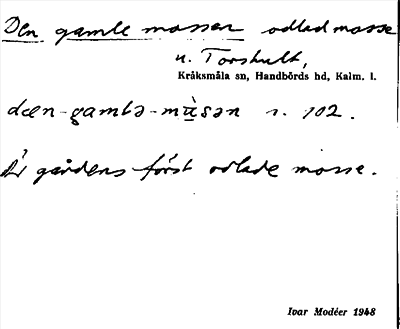 Den gamle mossen odlad mosse
u. Torshult,
Kråksmåla sn, Handbörds hd, Kalm. l.
dæn-gambə-mùsən s. 102.
Är gårdens först odlade mosse.
Ivar Modéer 1948